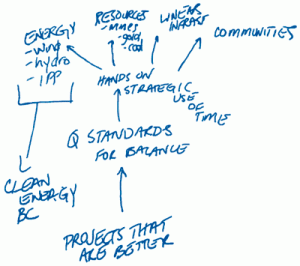 ENERGY
- wind
- hydro
- IPP
RESOURCES
- mines
- gold
- coal
LINEAR
INFRAST
COMMUNITIES
HANDS ON
STRATEGIC
USE
OF
TIME
Q STANDARDS
FOR BALANCE
CLEAN
ENERGY
BC
PROJECTS THAT
ARE BETTER